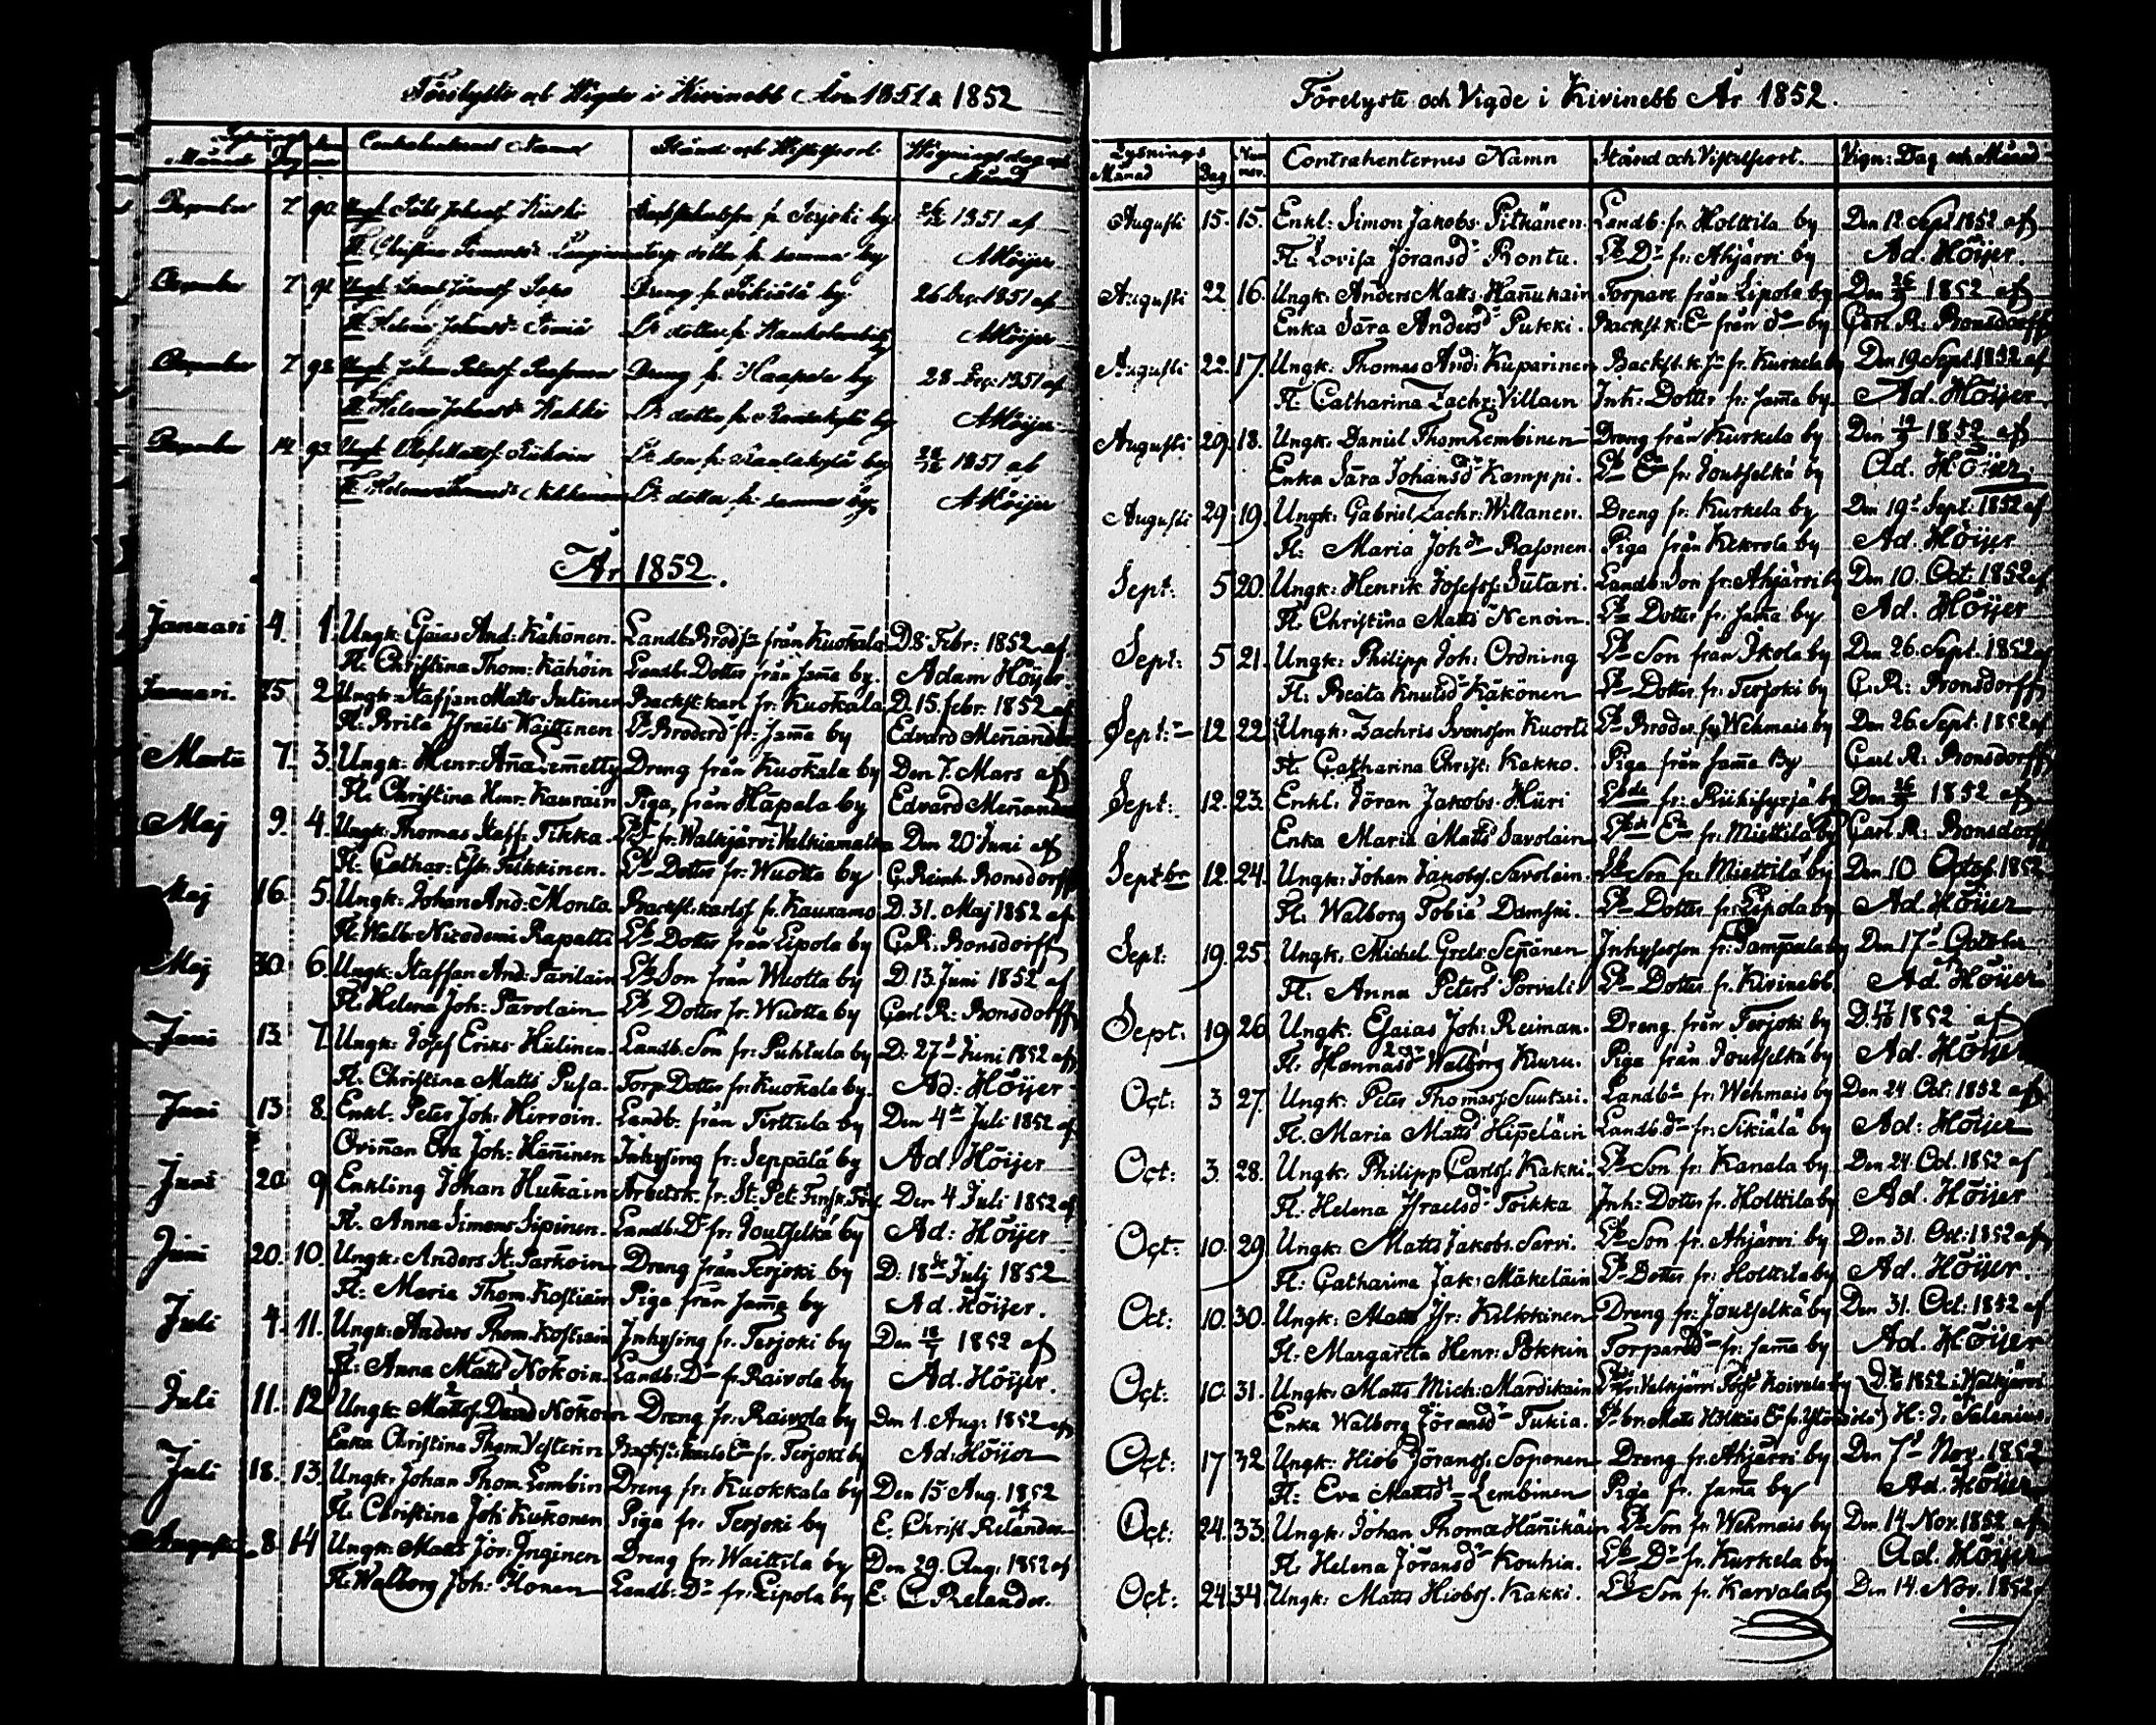 Förelyste och Wigde i Kivinebb Åren 1851 & 1852
Lysnings Num
Månad Dag mer Contrahenternes Namn Stånd och Wistelseort Wigningsdag och
Månad
December 7 90. Ungk Johansf by 26/12 1851 af
Fl: Christina Simonsdr dotter fr. samma by AHöijer
December 7 91. Ungk Dreng fr. Sikiälä by 26 Dec. 1851 af
Fl: Helena Johansdr Lb dotter fr. AHöijer
December 7 92. Ungk Johan Petersf. Dreng fr. Haapala by 28 Dec. 1851 af
Fl: Helena Johansdr Kakki Lb dotter fr. by AHöijer
December 14 93. Ungk Olof Mattsf. Lb son fr. by 28/12 1851 af
Fl: Helena Lb dotter fr. samma by AHöijer
År 1852.
Januari 4. 1. Ungk. Esaias And: Kähönen. Landb. Brods från Kuokkala D. 8. Febr: 1852 af
Fl: Christina Thom: Kähöin Landb. Dotter från sam̃a by. Adam Höijer.
Januari. 25 2. Ungk: Staffan Matts Intinen Backst: karl fr: Kuokala D. 15. febr. 1852 af
Fl: Brita Israels Waittinen Lb Broderdr fr: sam̃a by Edvard Meñander
Martii 7. 3. Ungk: Henr: Aña Lem̃etty Dreng från Kuokala by Den 7. Mars af
Fl: Christina Henr: Kaurain Piga, från Hapala by Edvard Meñander
Maj 9. 4. Ungk: Thomas Staff: Tikka. fr: Walkjärvi Valkiamatka Den 20 Juni af
Fl: Cathar: Esk: Kilkkinen. Lb Dotter fr: Wuotta by C. Reinh. Bonsdorff
Maj 16. 5. Ungk: Johan And: Monta. Backst: karlsf fr. Kauxamo D. 31. Maj 1852 af
Fl: Walb: Nicodemi Rapatti Lb Dotter från Lipola by C. R: Bonsdorff
Maj 30. 6. Ungk: Staffan And: Parilain Lb Son från Wuotta by D. 13. Juni 1852 af
Fl: Helena Joh: Parolain Lb Dotter fr. Wuotta by Carl R: Bonsdorff
Juni 13. 7. Ungk: Josef Eriks Hälinen Landb. Son fr: Puhtula by D. 27de Juni 1852 af
Fl: Christina Matts Pusa. Torp. Dotter fr: Kuokala by. Ad: Höijer
Juni 13 8. Enkl. Peter Joh: Hirvoin. Landb. från Tirttula by Den 4de Juli 1852 af
Qviñan Eva Joh: Häñinen Inhysing fr: Seppälä by Ad: Höijer
Juni 20 9. Enkling Johan Hukkain Arbetsk. fr: St: Pet: Finsk. För. Den 4. Juli 1852 af
Fl. Anna Simons Sipinen. Landb. Dr fr: Joutselkä by Ad: Höijer
Juni 20. 10. Ungk: Anders St: Parkoin Dreng från Terjoki by D. 18de Julj 1852
Fl: Maria Thom. Kostiain Piga från sam̃a by Ad. Höijer.
Juli 4. 11. Ungk: Anders Thom. Kostiain Inhysing fr. Terjoki by Den 18/7 1852 af
Fl: Anna Matts Nokoin. Landb: Dr fr. Raivola by Ad. Höijer.
Juli 11. 12. Ungk: Mattsf. David Nokoin Dreng fr: Raivola by Den 1. Aug: 1852 af
Enka Christina Thom Vesterinn Backst: karls Ea fr. Terjoki by Ad: Höijer
Juli 18. 13. Ungk: Johan Thom. Lembin Dreng fr: Kuokkala by Den 15 Aug. 1852
Fl: Christina Joh: Kukonen Piga fr: Terjoki by E. Christ Relander
Augusti 8. 14 Ungk: Matts Jör: Inginen Dreng fr: Waittila by Den 29. Aug. 1852 af
Fl: Walborg Joh: Honen Landb: Dr fr: Lipola by E. C. Relander.
Förelyste och Vigde i Kivinebb År 1852.
Lysnings Num
Månad Dag mer. Contrahenternes Namn Stånd och Vistelseort. Vign: Dag och Månad
Augusti 15. 15. Enkl: Simon Jakobs Pitkänen. Landb: fr: Holttila by Den 12 Sept 1852 af
Fl: Lovisa Jöransdr Rontu. Lb Dr fr: Ahjärvi by Ad. Höijer.
Augusti 22 16. Ungk: Anders Matts Hañukain Torpare från Lipola by Den 26/9 1852 af
Enka Sara Andersdr Pukki. Backst. k: Ea från do by Carl R: Bonsdorff
Augusti 22. 17. Ungk: Thomas And: Kuparinen Backst. k. sn fr. Kurkela by Den 19. Sept. 1852 af
Fl: Catharina Zachr: Villain Inh: Dotter fr: sam̃a by. Ad. Höijer.
Augusti 29. 18. Ungk: Daniel Thom Lembinen Dreng från Kurkela by Den 19/9 1852 af
Enka Sara Johansdr Kamppi. Lb Ea fr. Joutselkä by Ad. Höijer.
Augusti 29 19. Ungk: Gabriel Zachr: Willanen. Dreng fr. Kurkela by Den 19de Sept: 1852 af
Fl: Maria Johdr Rasonen. Piga från Kekrola by Ad. Höijer
Sept: 5 20. Ungk: Henrik Josefsf: Sutari. Landb: Son fr: Ahjärvi by Den 10. Oct: 1852 af
Fl: Christina Matts Nenoin. Lb Dotter fr: sam̃a by Ad. Höijer
Sept: 5 21. Ungk: Philipp Joh: Ordning Lb Son från Ikola by Den 26. Sept. 1852 af
Fl: Beata Knutsdr Käkönen Lb Dotter fr: Terjoki by C. R: Bonsdorff
Sept: 12 22. Ungk: Zachris Svensson Kuorti Lb Broder fr: Wehmais by Den 26. Sept: 1852 af
Fl: Catharina Christ: Kakko. Piga från sam̃a By Carl R: Bonsdorff
Sept: 12. 23. Enkl: Jöran Jakobs Hüri Lbde fr: Riihisyrjä by Den 26/9 1852 af
Enka Maria Matts Savolain Lbde Ea fr: Miettilä by Carl R: Bonsdorff
Septbr 12. 24. Ungk: Johan Jakobs. Savolain. Lb Son fr: Miettilä by Den 10 Octob. 1852
Fl: Walborg Tobiae Damski. Lb Dotter fr: Lipola by Ad. Höijer
Sept: 19. 25. Ungk: Michel Grels: Señänen Inhyseson fr: Pamppala by Den 17de October
Fl: Anna Peters Porvali Lb Dotter fr. Kivinebb Ad. Höijer
Sept. 19 26 Ungk: Esaias Joh: Reiman. Dreng från Terjoki by D. 17/10 1852 af
Fl: Hannasdr Walborg Kuru. Piga från Joutselkä by Ad. Höijer
Oct: 3 27. Ungk: Peter Thomasf. Suutari. Landbn fr: Wehmais by Den 24 Oct: 1852 af
Fl. Maria Matts Hipeläin Landb. dr fr: Sikiälä by Ad: Höijer
Oct: 3. 28. Ungk: Philipp Carlsf: Kakki. Lb Son fr: Kanala by. Den 24 Oct. 1852 af
Fl. Helena Israelsdr Toikka Inh: Dotter fr. Holttila by Ad. Höijer
Oct: 10. 29. Ungk: Matts Jakobs. Sarvi. Lb Son fr. Ahjärvi by Den 31. Oct: 1852 af
Fl: Catharina Jak: Mäkeläin Lb Dotter fr: Holttila by Ad. Höijer.
Oct: 10. 30. Ungk: Matts Isr: Kilkkinen Dreng fr: Joutselkä by Den 31. Oct: 1852 af
Fl: Margaretta Henr: Pökkin Torparedr fr: sam̃a by Ad. Höijer
Oct: 10. 31. Ungk: Matts Mich: Mardikain fr: Valkjärvi Koivula by 1852 i Walkjärvi
Enka Walborg Jöransdr Tukia. H: J. Salenius.
Oct: 17 32 Ungk: Hiob Jöransf. Soponen Dreng fr. Ahjärvi by Den 7de Nov. 1852
Fl: Eva Mattsdr Lembinen Piga fr. sam̃a by Ad. Höijer
Oct: 24. 33. Ungk: Johan Thomæ Häñikäin Lb Son fr: Wehmais by Den 14. Nov. 1852 af
Fl: Helena Jöransdr Kouhia. Lb Dr fr. Kurkela by Ad. Höijer
Oct: 24. 34. Ungk: Matts Hiobs. Kakki. Lb Son fr. Karvala by Den 14. Nov. 1852